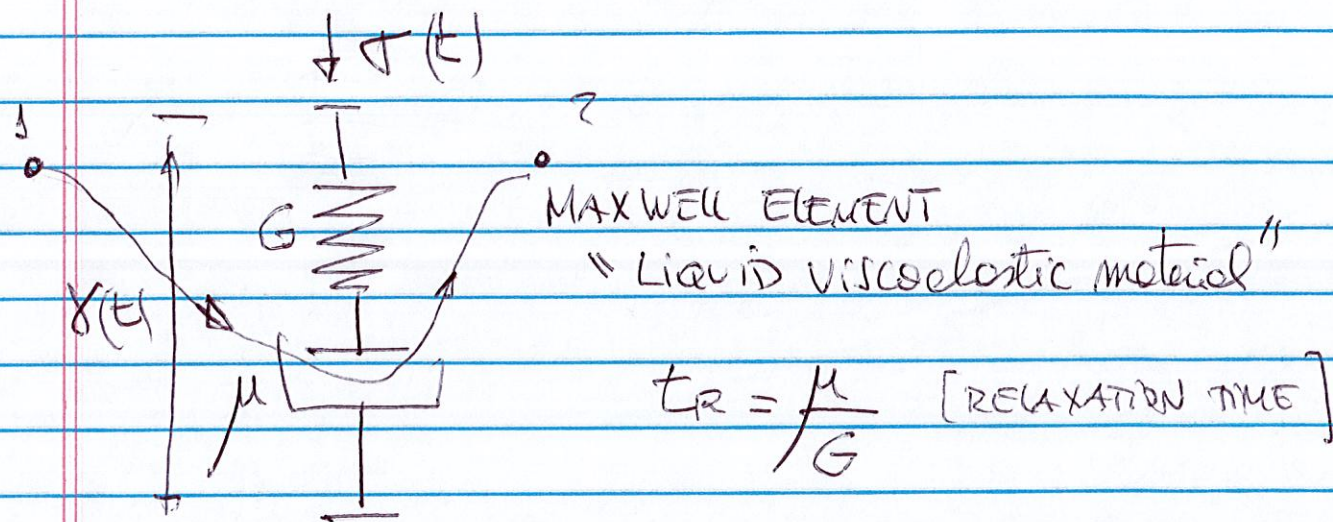 σ(t)
1
2
G
MAXWELL ELEMENT
"LIQUID viscoelastic material"
γ(t)
μ
t_R = μ/G [RELAXATION TIME]